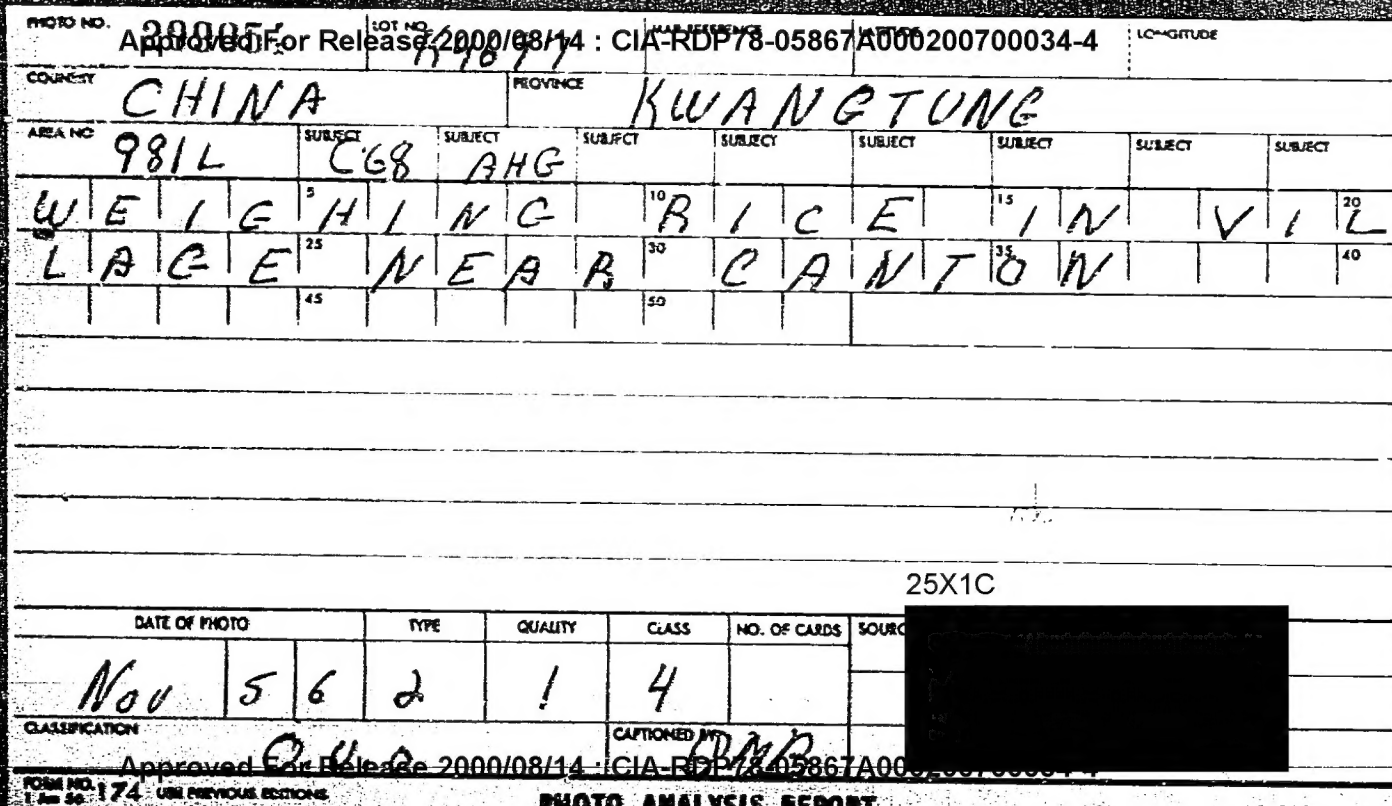 PHOTO NO. LOT NO. MAP REFERENCE LONGITUDE
Approved For Release 2000/08/14 : CIA-RDP78-05867A000200700034-4
COUNTRY CHINA PROVINCE KWANGTUNG
AREA NO 981L SUBJECT C68 SUBJECT AHG SUBJECT SUBJECT SUBJECT SUBJECT SUBJECT SUBJECT
WEIG 5 HING 10 RICE 15 IN VI 20 L
LAGE 25 NEAR 30 CANT 35 ON 40
45 50
25X1C
DATE OF PHOTO TYPE QUALITY CLASS NO. OF CARDS
Nov 5 6 2 1 4
CLASSIFICATION CAPTIONED BY
Approved For Release 2000/08/14 : CIA-RDP78-05867A000200700034-4
FORM NO. 174 USE PREVIOUS EDITIONS
1 Jun 56
PHOTO ANALYSIS REPORT